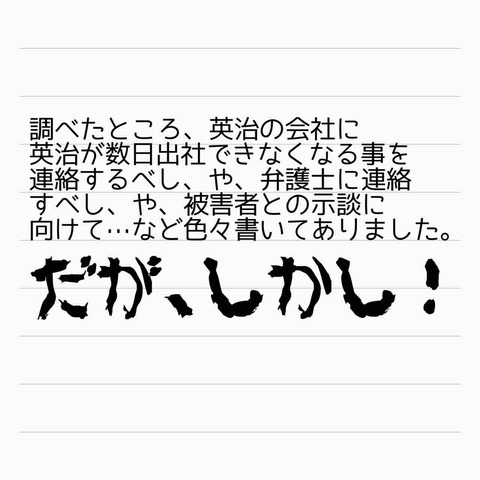 調べたところ、英治の会社に
英治が数日出社できなくなる事を
連絡するべし、や、弁護士に連絡
すべし、や、被害者との示談に
向けて…など色々書いてありました。
だが、しかし！